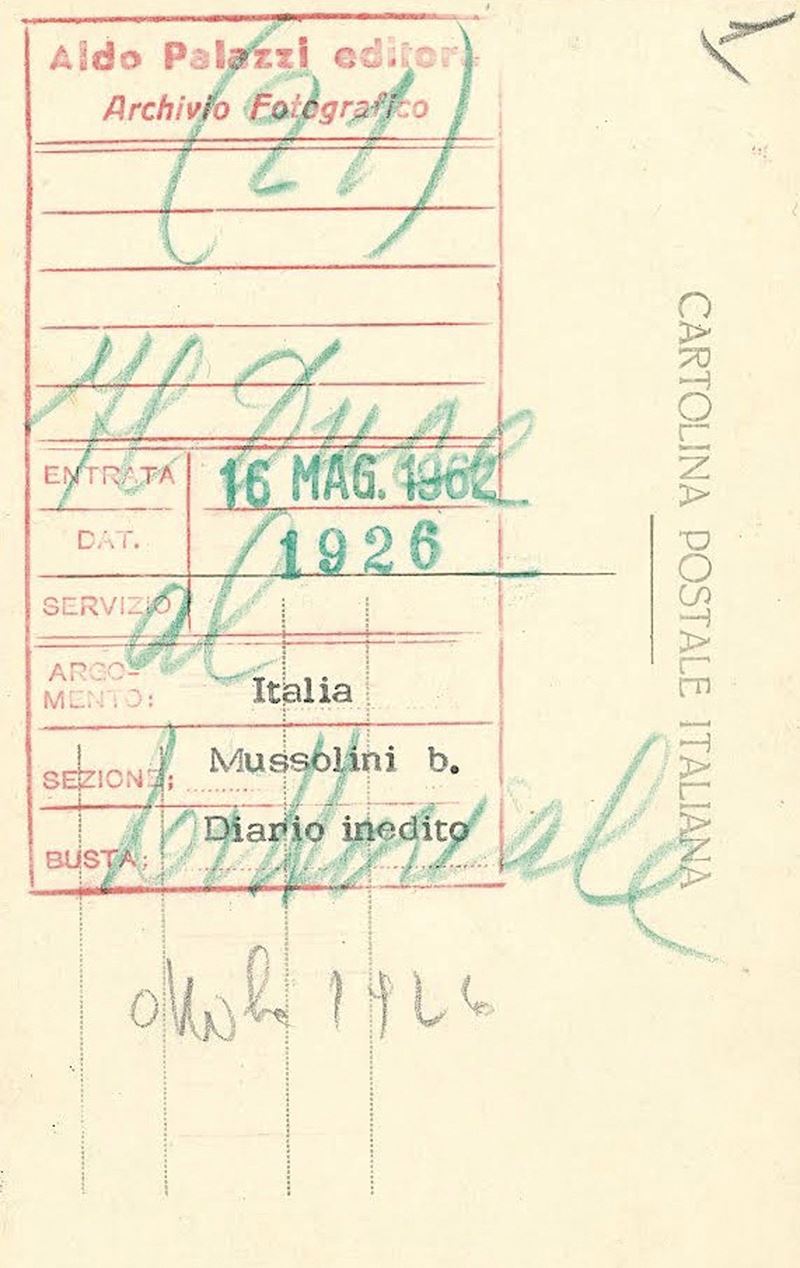 Aldo Palazzi editore
Archivio Fotografico
(21)
Il Duce
ENTRATA 16 MAG. 1962
DAT. 1926
al
SERVIZIO
ARGO-
MENTO: Italia
SEZIONE: Mussolini b.
Littoriale
BUSTA: Diario inedito
ottobre 1926
CARTOLINA POSTALE ITALIANA
1